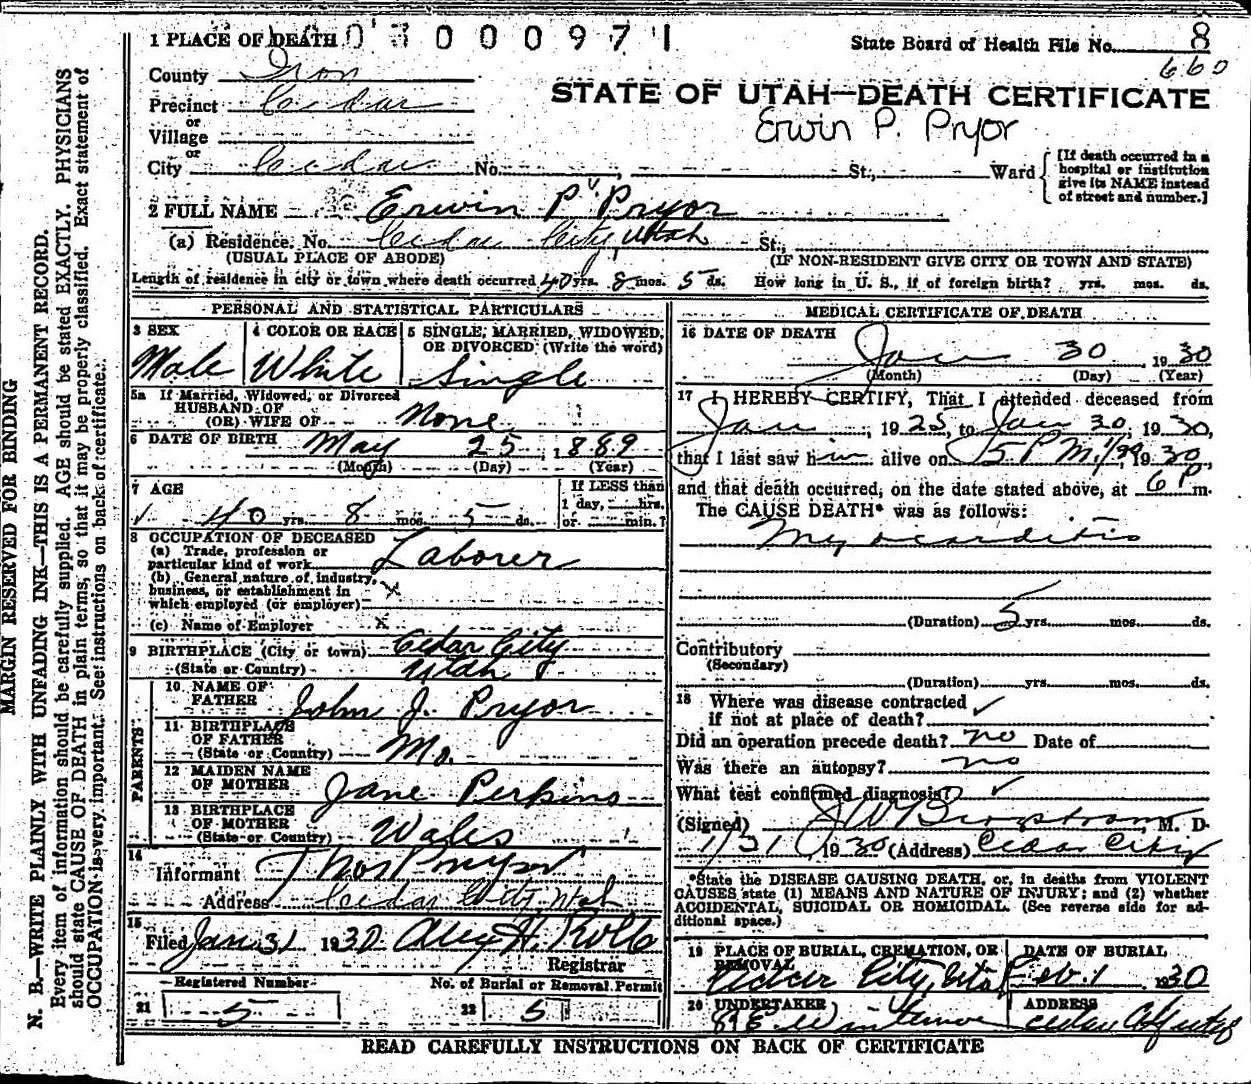 1 PLACE OF DEATH 0 3 0 0 0 9 7 1
State Board of Health File No. 8
660
County Iron
STATE OF UTAH—DEATH CERTIFICATE
Precinct Cedar
or
Erwin P. Pryor
Village
or
City Cedar No. , St., Ward
[If death occurred in a
hospital or institution
give its NAME instead
of street and number.]
2 FULL NAME Erwin P Pryor
(a) Residence. No. Cedar City, Utah St.,
(USUAL PLACE OF ABODE) (IF NON-RESIDENT GIVE CITY OR TOWN AND STATE)
Length of residence in city or town where death occurred 40 yrs. 8 mos. 5 ds. How long in U. S., if of foreign birth? yrs. mos. ds.
PERSONAL AND STATISTICAL PARTICULARS
3 SEX
Male
4 COLOR OR RACE
White
5 SINGLE, MARRIED, WIDOWED,
OR DIVORCED (Write the word)
Single
5a If Married, Widowed, or Divorced
HUSBAND OF
(OR) WIFE OF None
6 DATE OF BIRTH May 25, 1889
(Month) (Day) (Year)
7 AGE
40 yrs. 8 mos. 5 ds.
If LESS than
1 day, hrs.
or min.?
8 OCCUPATION OF DECEASED
(a) Trade, profession or
particular kind of work Laborer
(b) General nature of industry,
business, or establishment in
which employed (or employer) x
(c) Name of Employer x
9 BIRTHPLACE (City or town) Cedar City
(State or Country) Utah
PARENTS
10 NAME OF
FATHER John J. Pryor
11 BIRTHPLACE
OF FATHER
(State or Country) Mo.
12 MAIDEN NAME
OF MOTHER Jane Perkins
13 BIRTHPLACE
OF MOTHER
(State or Country) Wales
14
Informant Thos Pryor
Address Cedar City, Utah
15
Filed Jan 31 1930
Registrar
Registered Number No. of Burial or Removal Permit
21 5 22 5
MEDICAL CERTIFICATE OF DEATH
16 DATE OF DEATH
Jan 30 1930
(Month) (Day) (Year)
17 I HEREBY CERTIFY, That I attended deceased from
Jan, 1925, to Jan 30, 1930,
that I last saw him alive on 5 P M, 1930,
and that death occurred, on the date stated above, at 6 P m.
The CAUSE DEATH* was as follows:
Myocarditis
(Duration) 5 yrs. mos. ds.
Contributory
(Secondary)
(Duration) yrs. mos. ds.
18 Where was disease contracted
if not at place of death?
Did an operation precede death? no Date of
Was there an autopsy? no
What test confirmed diagnosis?
(Signed) J W Bergstrom, M. D.
1/31 1930 (Address) Cedar City
*State the DISEASE CAUSING DEATH, or, in deaths from VIOLENT
CAUSES state (1) MEANS AND NATURE OF INJURY; and (2) whether
ACCIDENTAL, SUICIDAL OR HOMICIDAL. (See reverse side for ad-
ditional space.)
19 PLACE OF BURIAL, CREMATION, OR
REMOVAL
Cedar City, Uta
DATE OF BURIAL
Feb. 1 1930
20 UNDERTAKER
ADDRESS
Cedar City
READ CAREFULLY INSTRUCTIONS ON BACK OF CERTIFICATE
MARGIN RESERVED FOR BINDING
N. B.—WRITE PLAINLY WITH UNFADING INK—THIS IS A PERMANENT RECORD.
Every item of information should be carefully supplied. AGE should be stated EXACTLY. PHYSICIANS
should state CAUSE OF DEATH in plain terms, so that it may be properly classified. Exact statement of
OCCUPATION is very important. See instructions on back of certificate.